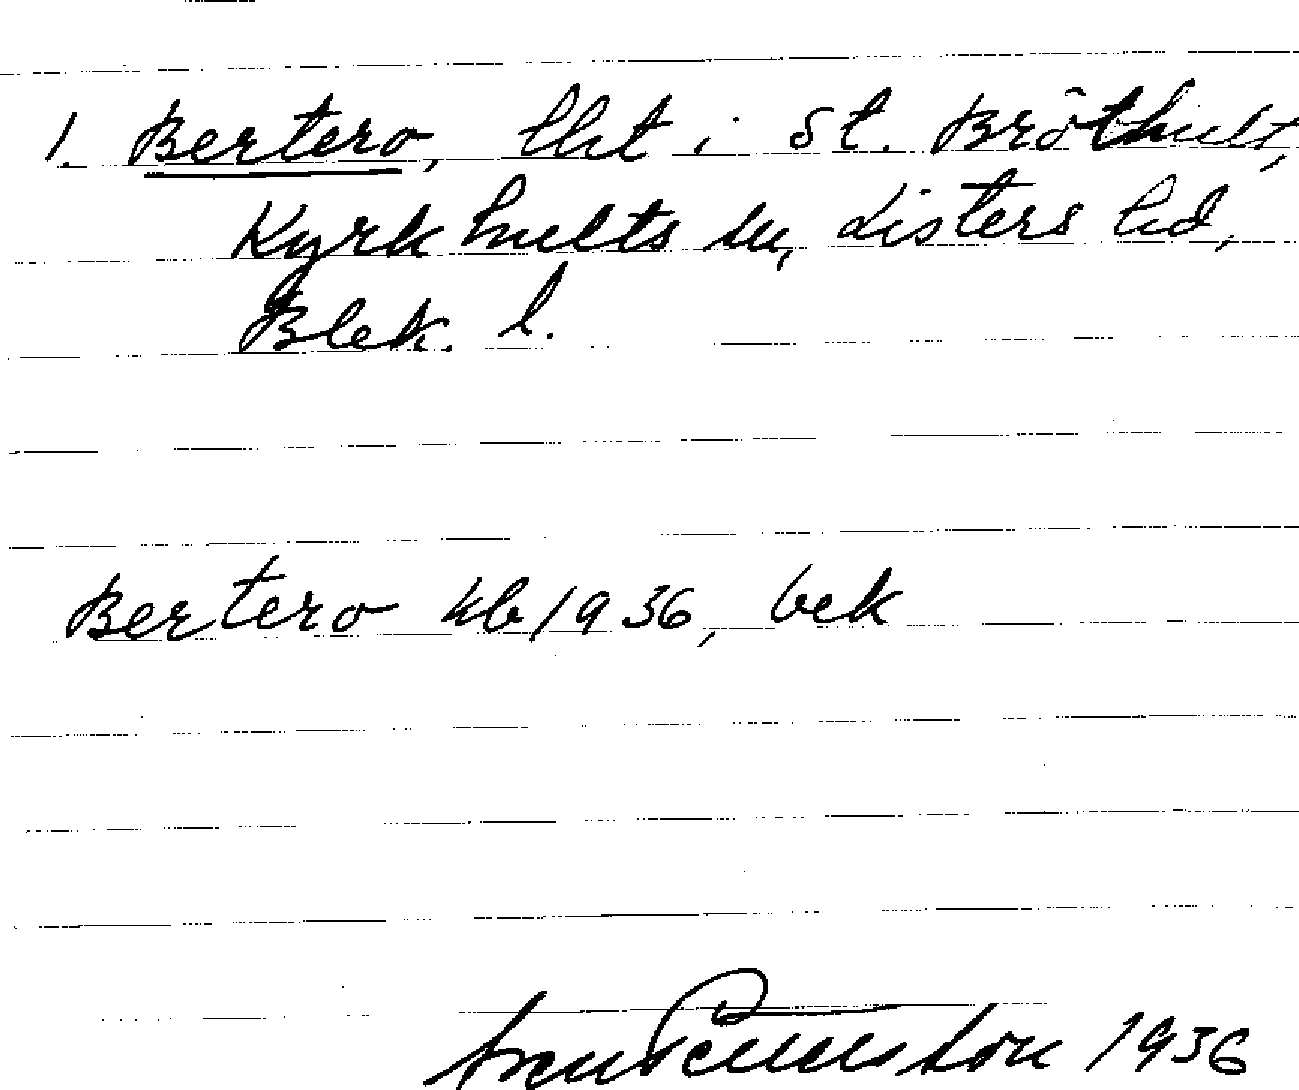 1. Bertero, lht i St. Bröthult,
Kyrkhults sn, Listers hd,
Blek. l.
Bertero kb 1936, bek
1936